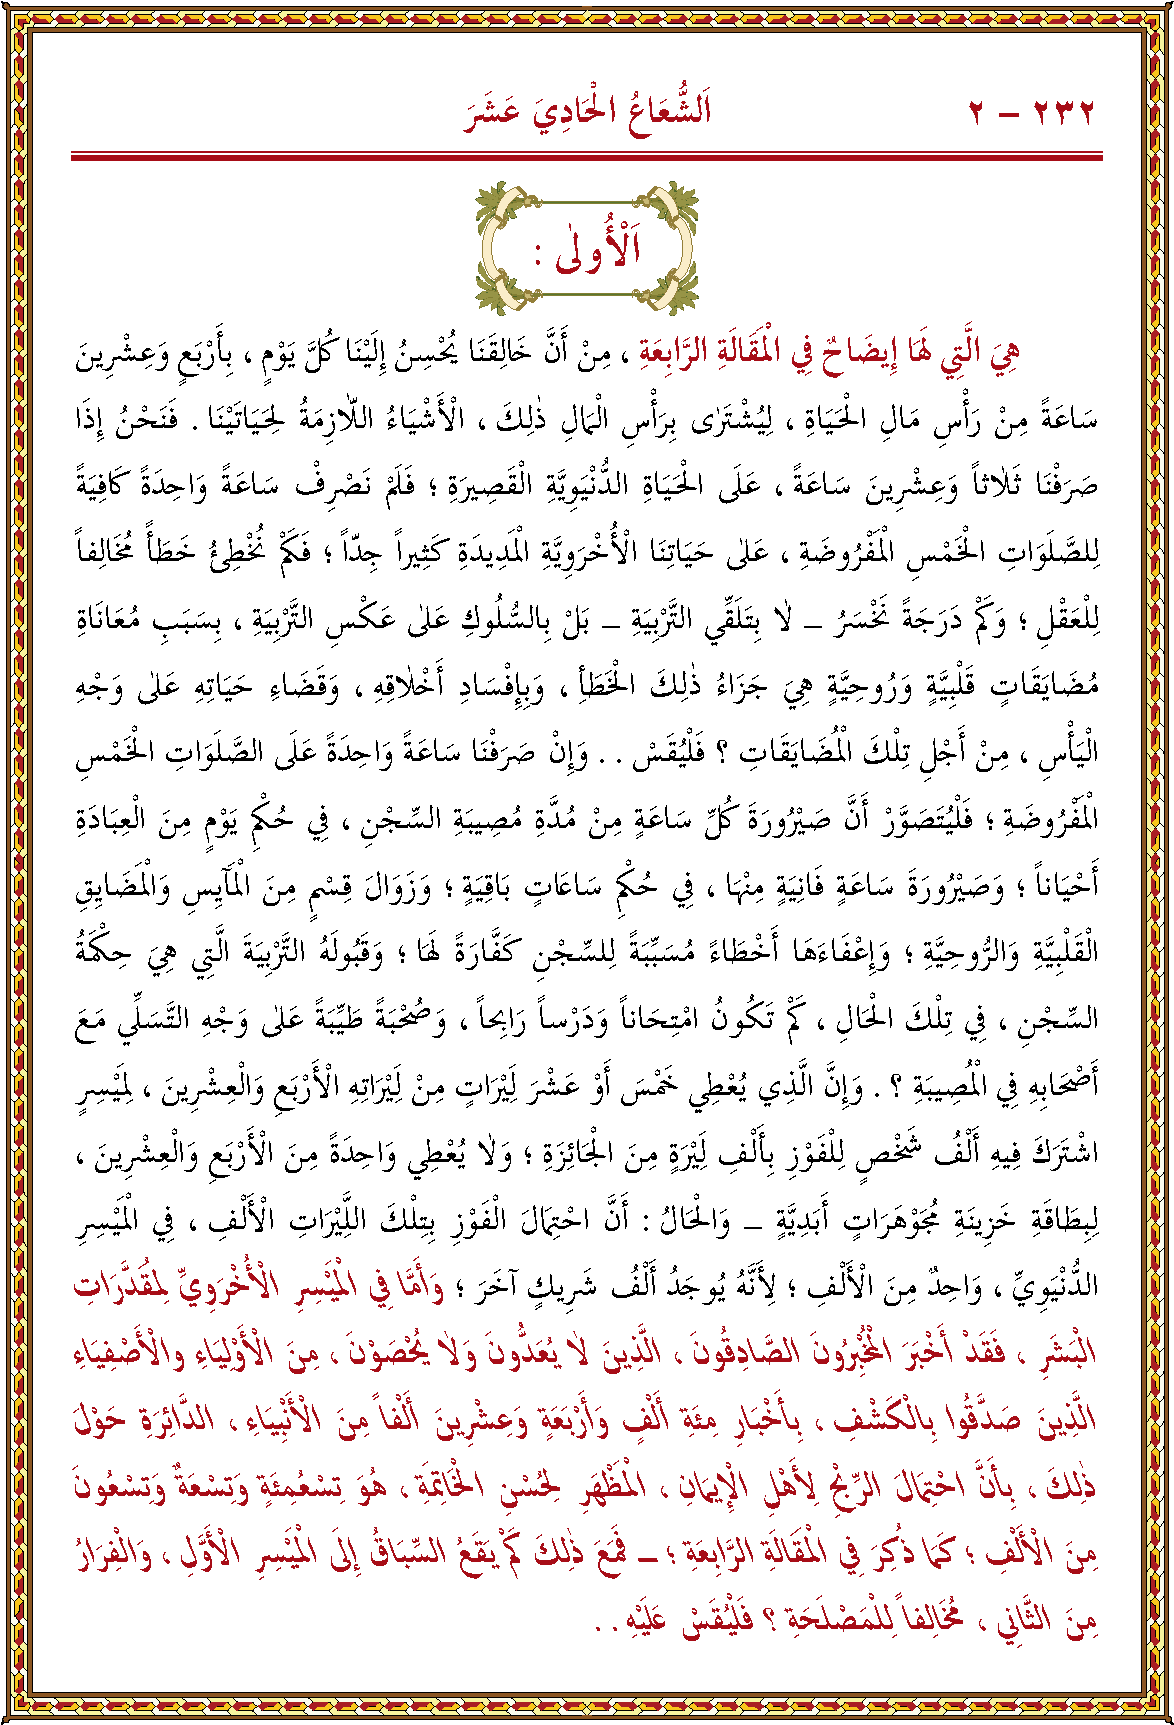 ٢٣٢ – ٢ اَلشُّعَاعُ الْحَادِيَ عَشَرَ
اَلْأُولٰى :
هِيَ الَّتِي لَهَا إِيضَاحٌ فِي الْمَقَالَةِ الرَّابِعَةِ ، مِنْ أَنَّ خَالِقَنَا يُحْسِنُ إِلَيْنَا كُلَّ يَوْمٍ ، بِأَرْبَعٍ وَعِشْرِينَ
سَاعَةً مِنْ رَأْسِ مَالِ الْحَيَاةِ ، لِيُشْتَرٰى بِرَأْسِ الْمَالِ ذٰلِكَ ، الْأَشْيَاءُ اللّازِمَةُ لِحَيَاتَيْنَا . فَنَحْنُ إِذَا
صَرَفْنَا ثَلاٰثاً وَعِشْرِينَ سَاعَةً ، عَلَى الْحَيَاةِ الدُّنْيَوِيَّةِ الْقَصِيرَةِ ؛ فَلَمْ نَصْرِفْ سَاعَةً وَاحِدَةً كَافِيَةً
لِلصَّلَوَاتِ الْخَمْسِ الْمَفْرُوضَةِ ، عَلٰى حَيَاتِنَا الْأُخْرَوِيَّةِ الْمَدِيدَةِ كَثِيراً جِدّاً ؛ فَكَمْ نُخْطِئُ خَطَأً مُخَالِفاً
لِلْعَقْلِ ؛ وَكَمْ دَرَجَةً نَخْسَرُ – لاٰ بِتَلَقِّي التَّرْبِيَةِ – بَلْ بِالسُّلُوكِ عَلٰى عَكْسِ التَّرْبِيَةِ ، بِسَبَبِ مُعَانَاةِ
مُضَايَقَاتٍ قَلْبِيَّةٍ وَرُوحِيَّةٍ هِيَ جَزَاءُ ذٰلِكَ الْخَطَأِ ، وَبِإِفْسَادِ أَخْلاٰقِهِ ، وَقَضَاءِ حَيَاتِهِ عَلٰى وَجْهِ
الْيَأْسِ ، مِنْ أَجْلِ تِلْكَ الْمُضَايَقَاتِ ؟ فَلْيُقَسْ . . وَإِنْ صَرَفْنَا سَاعَةً وَاحِدَةً عَلَى الصَّلَوَاتِ الْخَمْسِ
الْمَفْرُوضَةِ ؛ فَلْيُتَصَوَّرْ أَنَّ صَيْرُورَةَ كُلِّ سَاعَةٍ مِنْ مُدَّةِ مُصِيبَةِ السِّجْنِ ، فِي حُكْمِ يَوْمٍ مِنَ الْعِبَادَةِ
أَحْيَاناً ؛ وَصَيْرُورَةَ سَاعَةٍ فَانِيَةٍ مِنْهَا ، فِي حُكْمِ سَاعَاتٍ بَاقِيَةٍ ؛ وَزَوَالَ قِسْمٍ مِنَ الْمَآيِسِ وَالْمَضَايِقِ
الْقَلْبِيَّةِ وَالرُّوحِيَّةِ ؛ وَإِعْفَاءَهَا أَخْطَاءً مُسَبِّبَةً لِلسِّجْنِ كَفَّارَةً لَهَا ؛ وَقَبُولَهُ التَّرْبِيَةَ الَّتِي هِيَ حِكْمَةُ
السِّجْنِ ، فِي تِلْكَ الْحَالِ ، كَمْ تَكُونُ امْتِحَاناً وَدَرْساً رَابِحاً ، وَصُحْبَةً طَيِّبَةً عَلٰى وَجْهِ التَّسَلِّي مَعَ
أَصْحَابِهِ فِي الْمُصِيبَةِ ؟ . وَإِنَّ الَّذِي يُعْطِي خَمْسَ أَوْ عَشْرَ لَيْرَاتٍ مِنْ لَيْرَاتِهِ الْأَرْبَعِ وَالْعِشْرِينَ ، لِمَيْسِرٍ
اشْتَرَكَ فِيهِ أَلْفُ شَخْصٍ لِلْفَوْزِ بِأَلْفِ لَيْرَةٍ مِنَ الْجَائِزَةِ ؛ وَلاٰ يُعْطِي وَاحِدَةً مِنَ الْأَرْبَعِ وَالْعِشْرِينَ ،
لِبِطَاقَةِ خَزِينَةِ مُجَوْهَرَاتٍ أَبَدِيَّةٍ – وَالْحَالُ : أَنَّ احْتِمَالَ الْفَوْزِ بِتِلْكَ اللَّيْرَاتِ الْأَلْفِ ، فِي الْمَيْسِرِ
الدُّنْيَوِيِّ ، وَاحِدٌ مِنَ الْأَلْفِ ؛ لِأَنَّهُ يُوجَدُ أَلْفُ شَرِيكٍ آخَرَ ؛ وَأَمَّا فِي الْمَيْسِرِ الْأُخْرَوِيِّ لِمُقَدَّرَاتِ
الْبَشَرِ ، فَقَدْ أَخْبَرَ الْمُخْبِرُونَ الصَّادِقُونَ ، الَّذِينَ لاٰ يُعَدُّونَ وَلاٰ يُحْصَوْنَ ، مِنَ الْأَوْلِيَاءِ وَالْأَصْفِيَاءِ
الَّذِينَ صَدَّقُوا بِالْكَشْفِ ، بِأَخْبَارِ مِئَةِ أَلْفٍ وَأَرْبَعَةٍ وَعِشْرِينَ أَلْفاً مِنَ الْأَنْبِيَاءِ ، الدَّائِرَةِ حَوْلَ
ذٰلِكَ ، بِأَنَّ احْتِمَالَ الرِّبْحِ لِأَهْلِ الْإِيمَانِ ، الْمَظْهَرِ لِحُسْنِ الْخَاتِمَةِ ، هُوَ تِسْعُمِئَةٍ وَتِسْعَةٌ وَتِسْعُونَ
مِنَ الْأَلْفِ ؛ كَمَا ذُكِرَ فِي الْمَقَالَةِ الرَّابِعَةِ ؛ – فَمَعَ ذٰلِكَ كَمْ يَقَعُ السِّبَاقُ إِلَى الْمَيْسِرِ الْأَوَّلِ ، وَالْفِرَارُ
مِنَ الثَّانِي ، مُخَالِفاً لِلْمَصْلَحَةِ ؟ فَلْيُقَسْ عَلَيْهِ . .